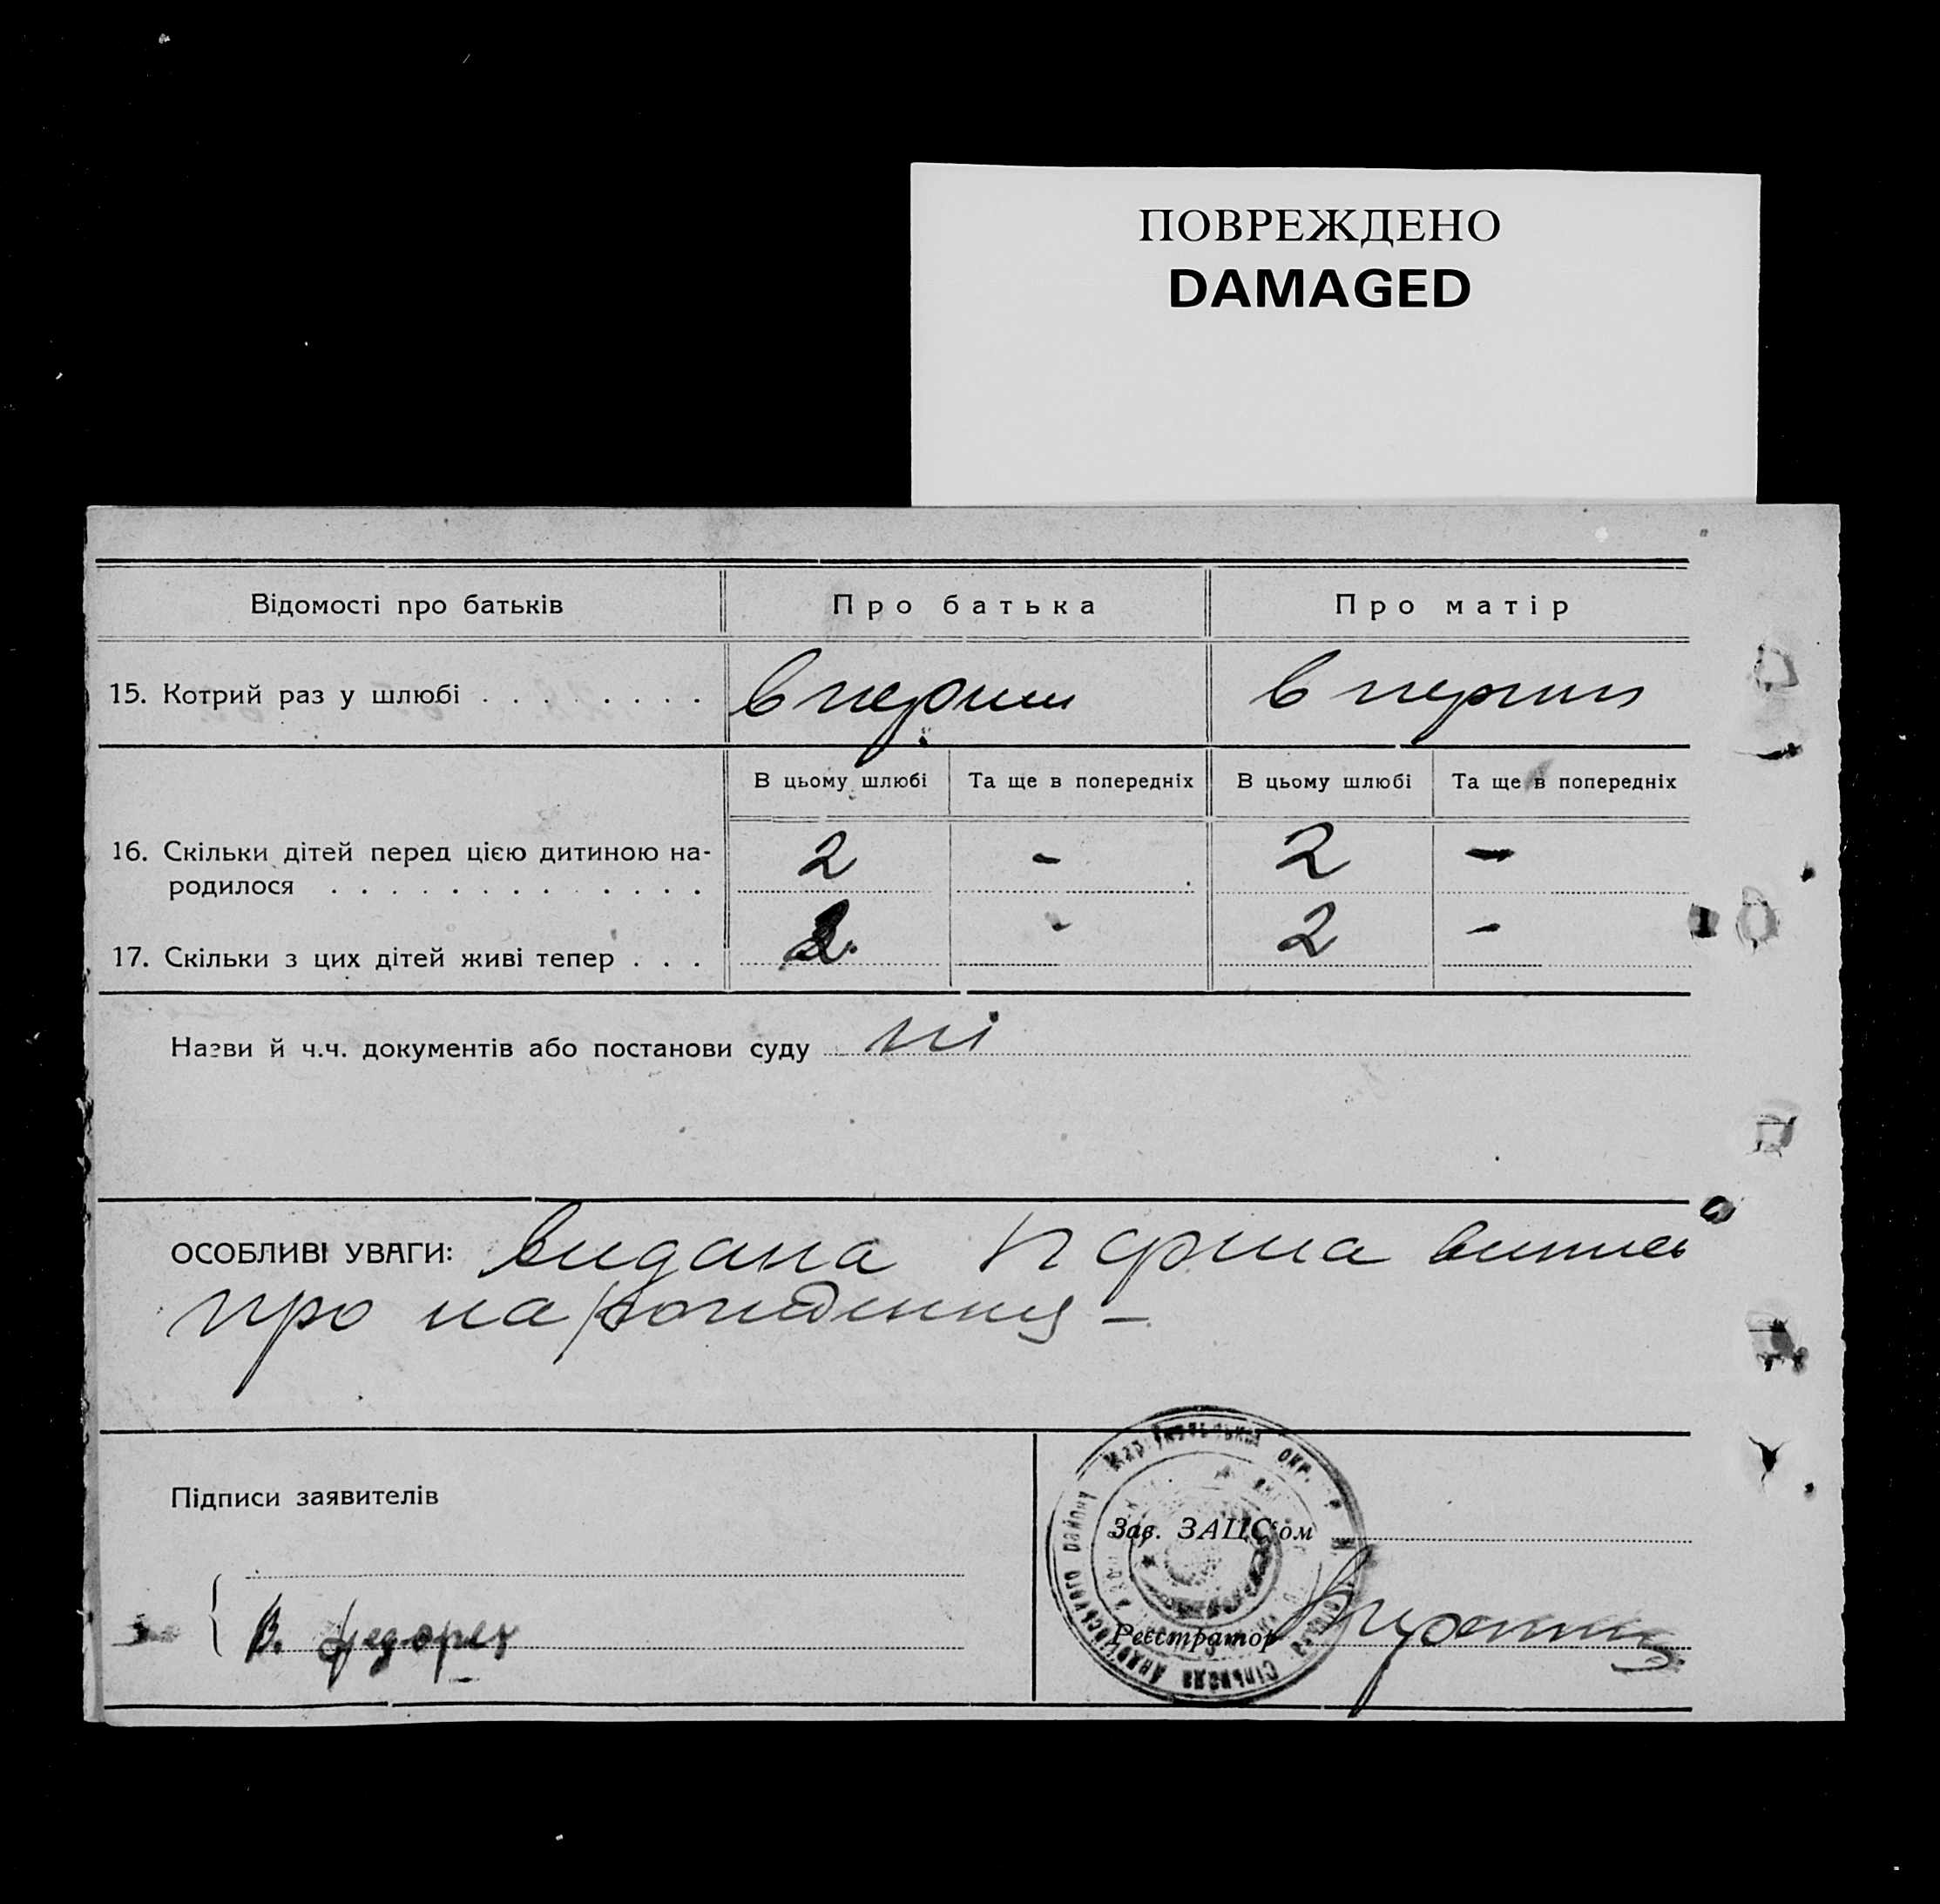 ПОВРЕЖДЕНО
DAMAGED
Відомості про батьків
Про батька
Про матір
15. Котрий раз у шлюбі . . . . . . . .
вперш
вперш
В цьому шлюбі
Та ще в попередніх
В цьому шлюбі
Та ще в попередніх
16. Скільки дітей перед цією дитиною на-
родилося . . . . . . . . . . . . .
2 - 2 -
17. Скільки з цих дітей живі тепер . . .
2. - 2 -
Назви й ч.ч. документів або постанови суду ні
ОСОБЛИВІ УВАГИ: видана перша випись
про народження –
Підписи заявителів
В. Федорец
Зав. ЗАЦС'ом
Реєстратор
Сільська
району
окр.